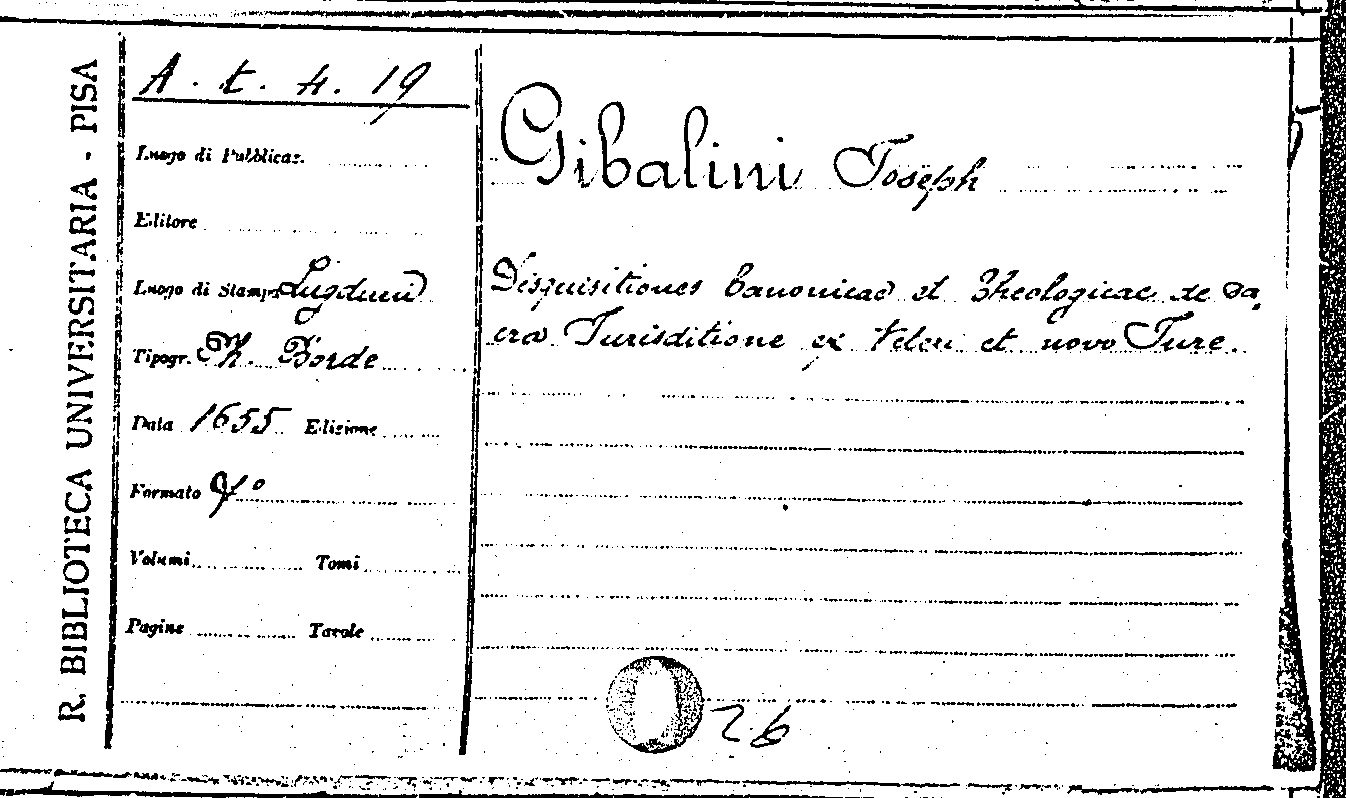 R. BIBLIOTECA UNIVERSITARIA - PISA
A. t. 4. 19
Luogo di Pubblicaz.
Editore
Luogo di Stampa Lugduni
Tipogr. Ph. Borde
Data 1655 Edizione
Formato 4°
Volumi Tomi
Pagine Tavole
Gibalini Joseph
Disquisitiones Canonicae et Theologicae de Sa,
cra Jurisditione ex Veteri et novo Jure.
26